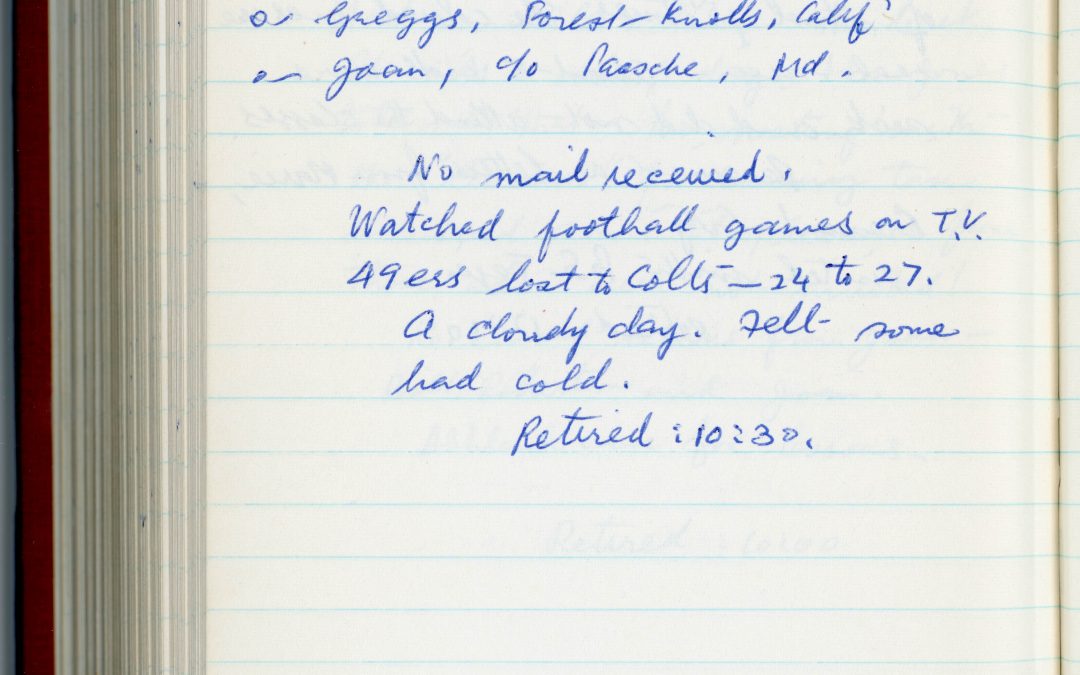 o Greggs, Forest-Knolls, Calif
o Joan, c/o Paasche, Md.
No mail received.
Watched football games on T.V.
49ers lost to Colts – 24 to 27.
A cloudy day. Fell some
had cold.
Retired : 10:30.
Retired : 10:00